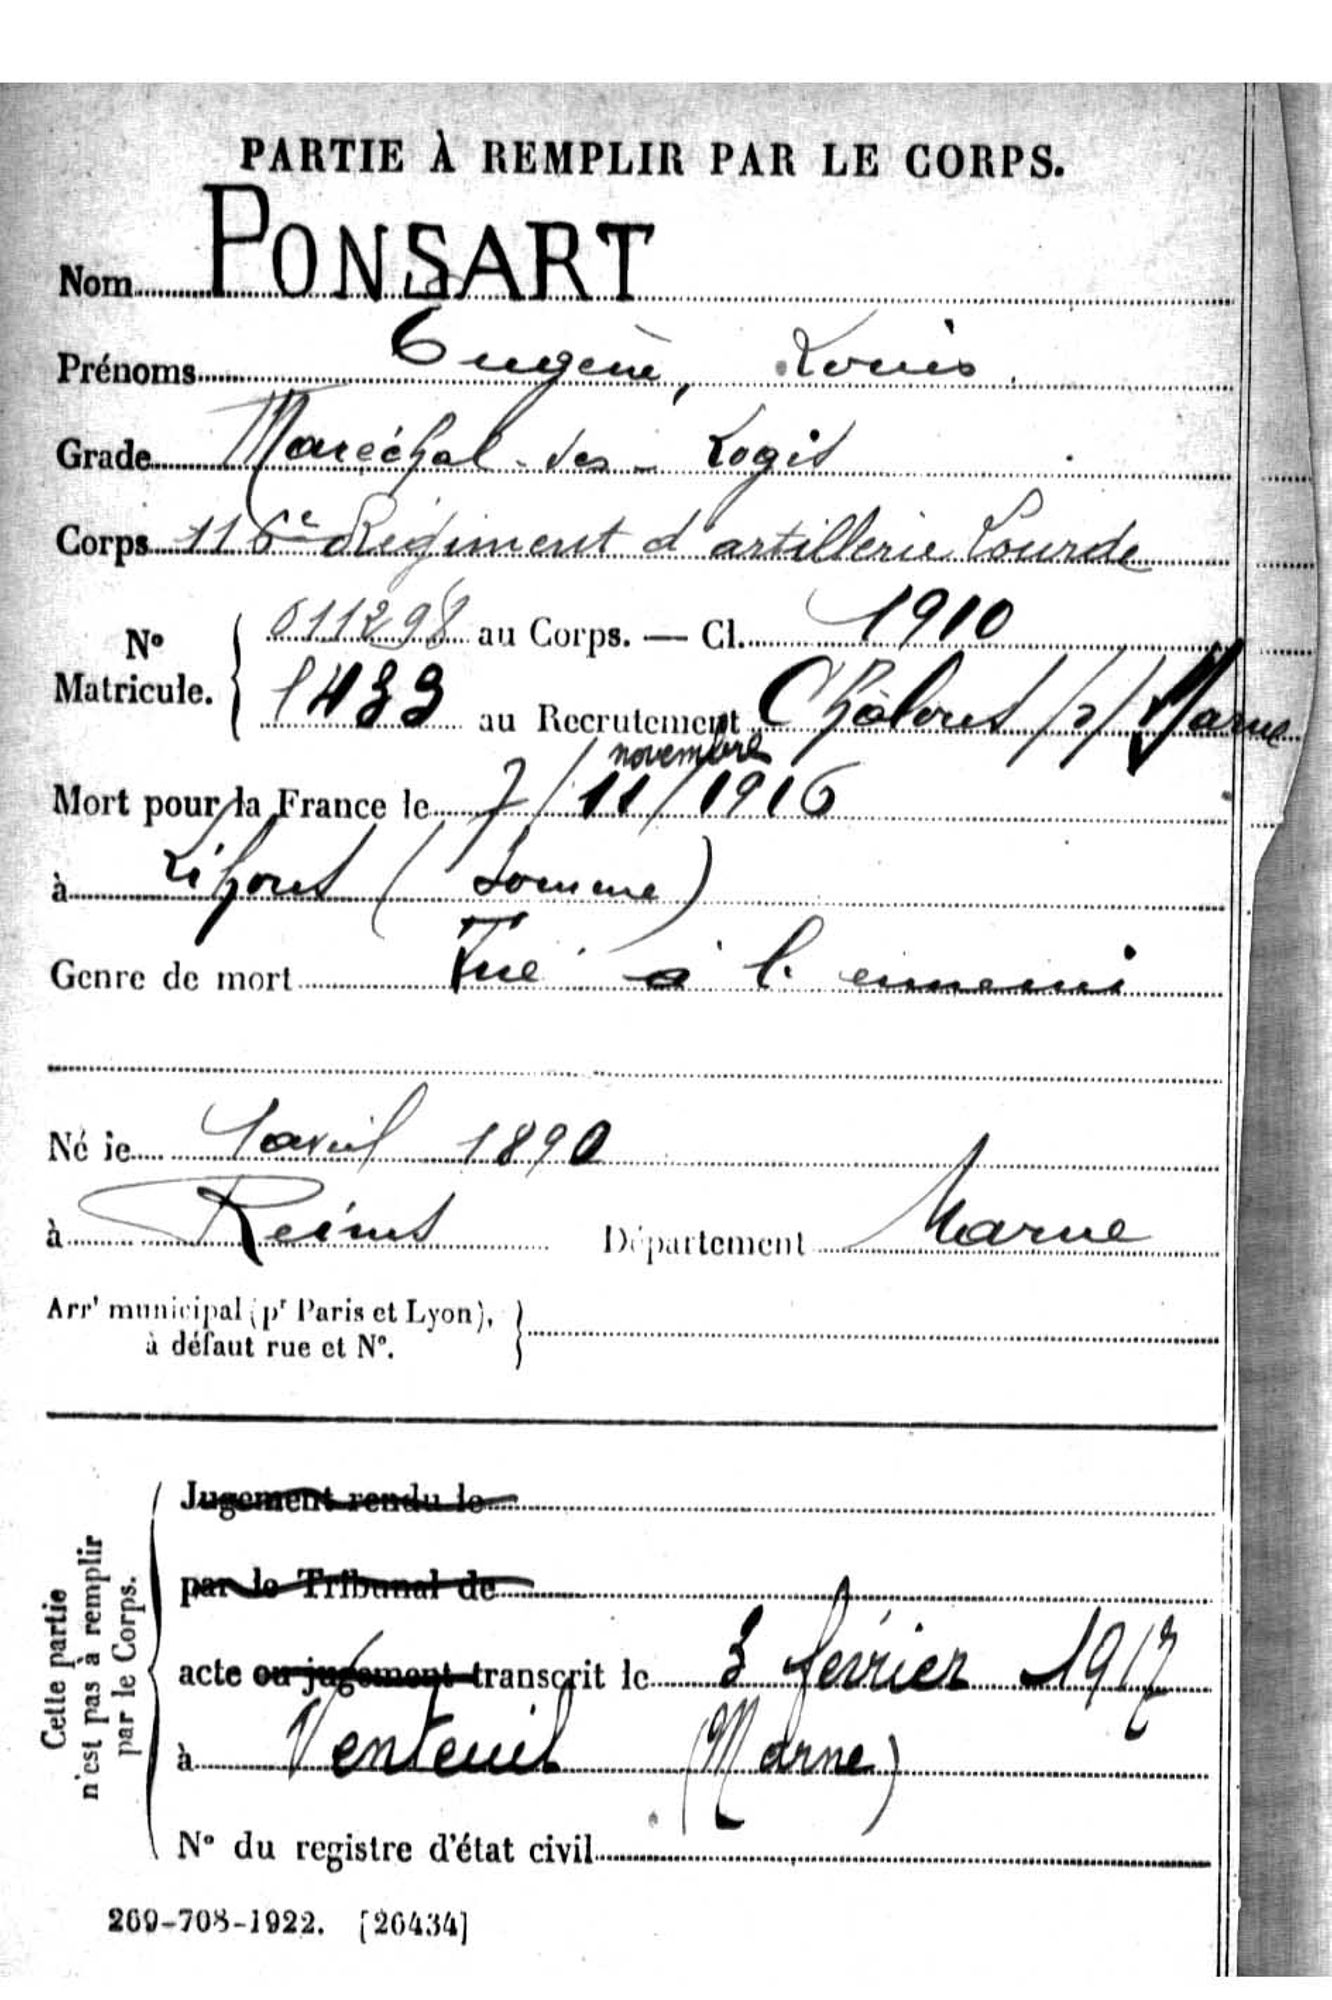 PARTIE À REMPLIR PAR LE CORPS.
Nom PONSART
Prénoms Eugène, Louis
Grade Maréchal-des-Logis
Corps 116e Régiment d'artillerie Lourde
N° Matricule. 011298 au Corps. — Cl. 1910
1433 au Recrutement Châlons s/ Marne
novembre
Mort pour la France le 7/11/1916
à Lihons (Somme)
Genre de mort Tué à l'ennemi
Né le 1 avril 1890
à Reims Département Marne
Arrt municipal (pr Paris et Lyon),
à défaut rue et N°.
Cette partie
n'est pas à remplir
par le Corps.
Jugement rendu le
par le Tribunal de
acte ou jugement transcrit le 3 février 1917
à Venteuil (Marne)
N° du registre d'état civil
269-708-1922. [26434]